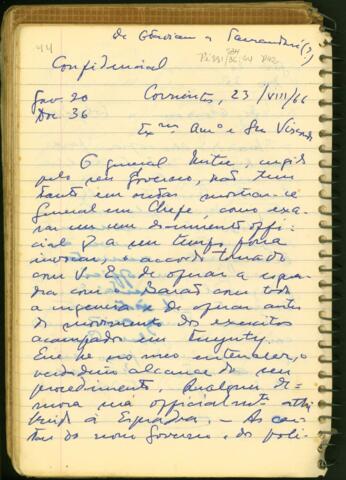 44
de Octaviano a
Confidencial
Gav. 20
Doc. 36
Corrientes, 23/VIII/66
Exmo. Amo. e Snr. Visconde
O general Mitre, urgido
pelo seu Governo, não tem
tanto em vistas mostrar-se
General em Chefe, como
em um documento offi-
cial q. a um tempo
invocar, o accordo tomado
com V. E. de operar a esqua-
dra com o Barão com toda
a urgencia e de operar antes
do movimento dos exercitos
acampados em Tuyuty.
Eis no meu entender, o
verdadeiro alcance do seu
procedimento. Qualquer de-
mora será officialmte. attri-
buida á Esquadra. — As car-
tas do nosso Governo, do